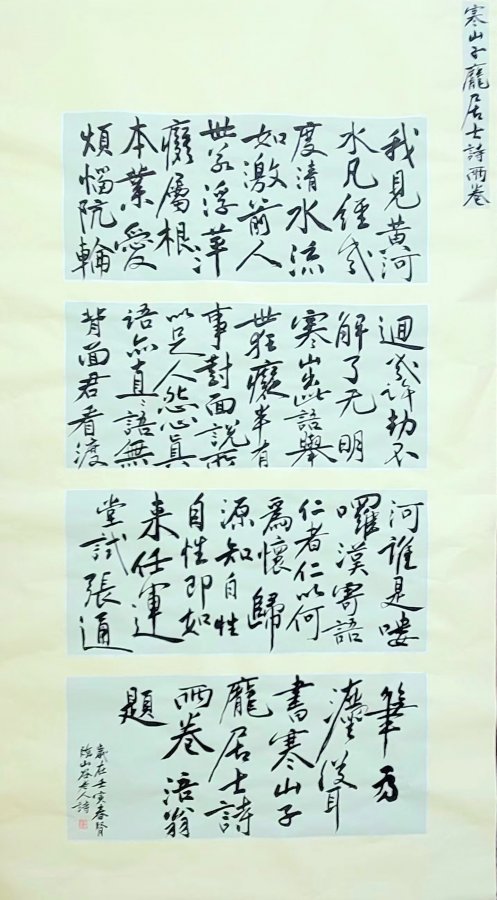 寒山子龐居士詩兩卷
我見黃河
水凡經幾
度清水流
如激箭人
世若浮萍
癡屬根
本業愛
煩惱阬輪
迴幾許劫不
解了无明
寒山出此語舉
世狂癡半有
事對面說所
以足人怨心真
語亦直〻語無
背面君看渡
河誰是嘍
囉漢寄語
仁者仁以何
為懷歸
源知自性
自性即如
來任運
堂試張通
筆為
書寒山子
龐居士詩
兩卷涪翁
題
歲在壬寅春
山谷人詩